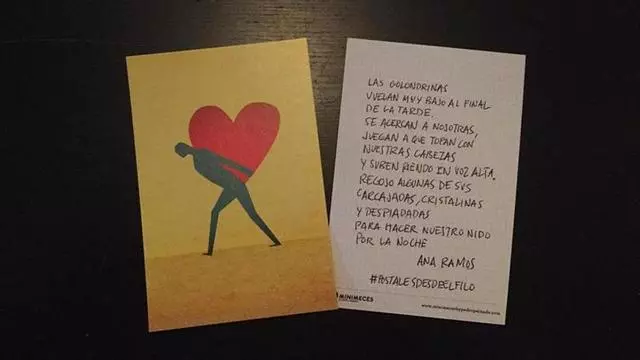 LAS GOLONDRINAS
VUELAN MUY BAJO AL FINAL
DE LA TARDE.
SE ACERCAN A NOSOTRAS,
JUEGAN A QUE TOPAN CON
NUESTRAS CABEZAS
Y SUBEN RIENDO EN VOZ ALTA.
RECOJO ALGUNAS DE SUS
CARCAJADAS, CRISTALINAS
Y DESPIADADAS
PARA HACER NUESTRO NIDO
POR LA NOCHE
ANA RAMOS
#POSTALESDESDEELFILO
MINIMECES